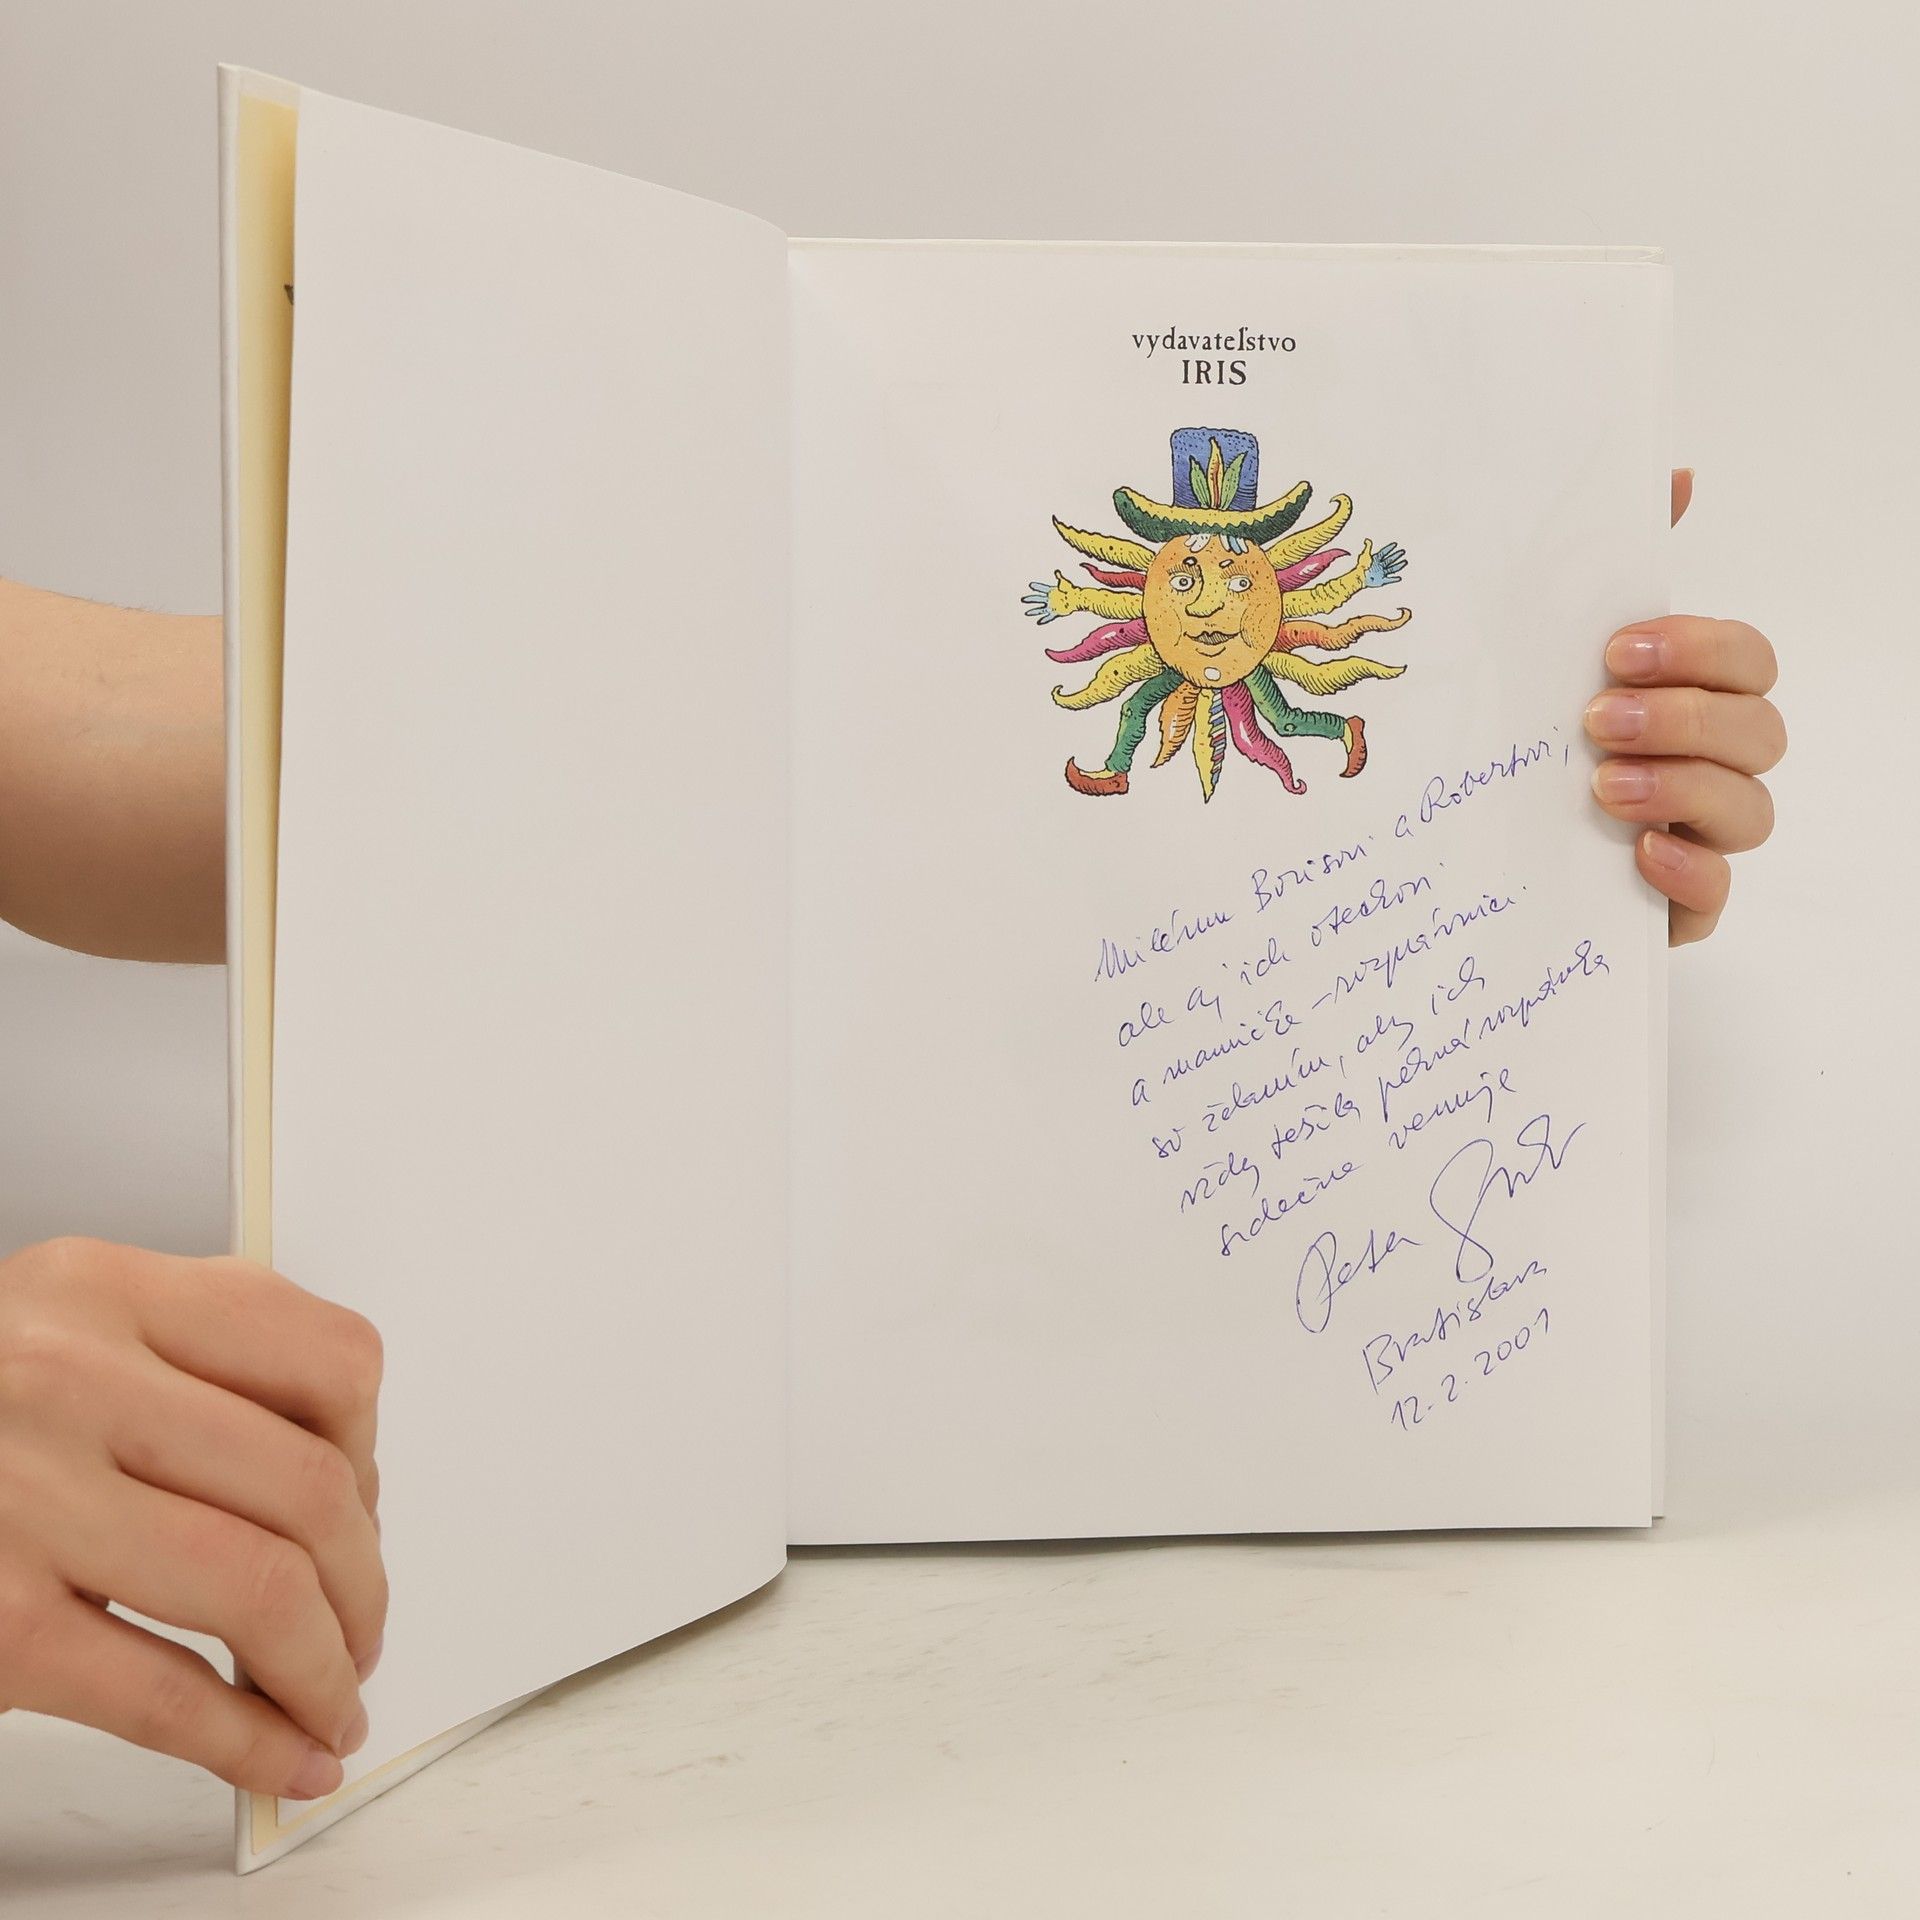 vydavateľstvo
IRIS
Milému Borisovi a Robertovi,
ale aj ich oteckovi
a mamičke - rozprávnici
so želaním, aby ich
vždy tešila pekná rozprávka
srdečne venuje
Peter
Bratislava
12.2.2001